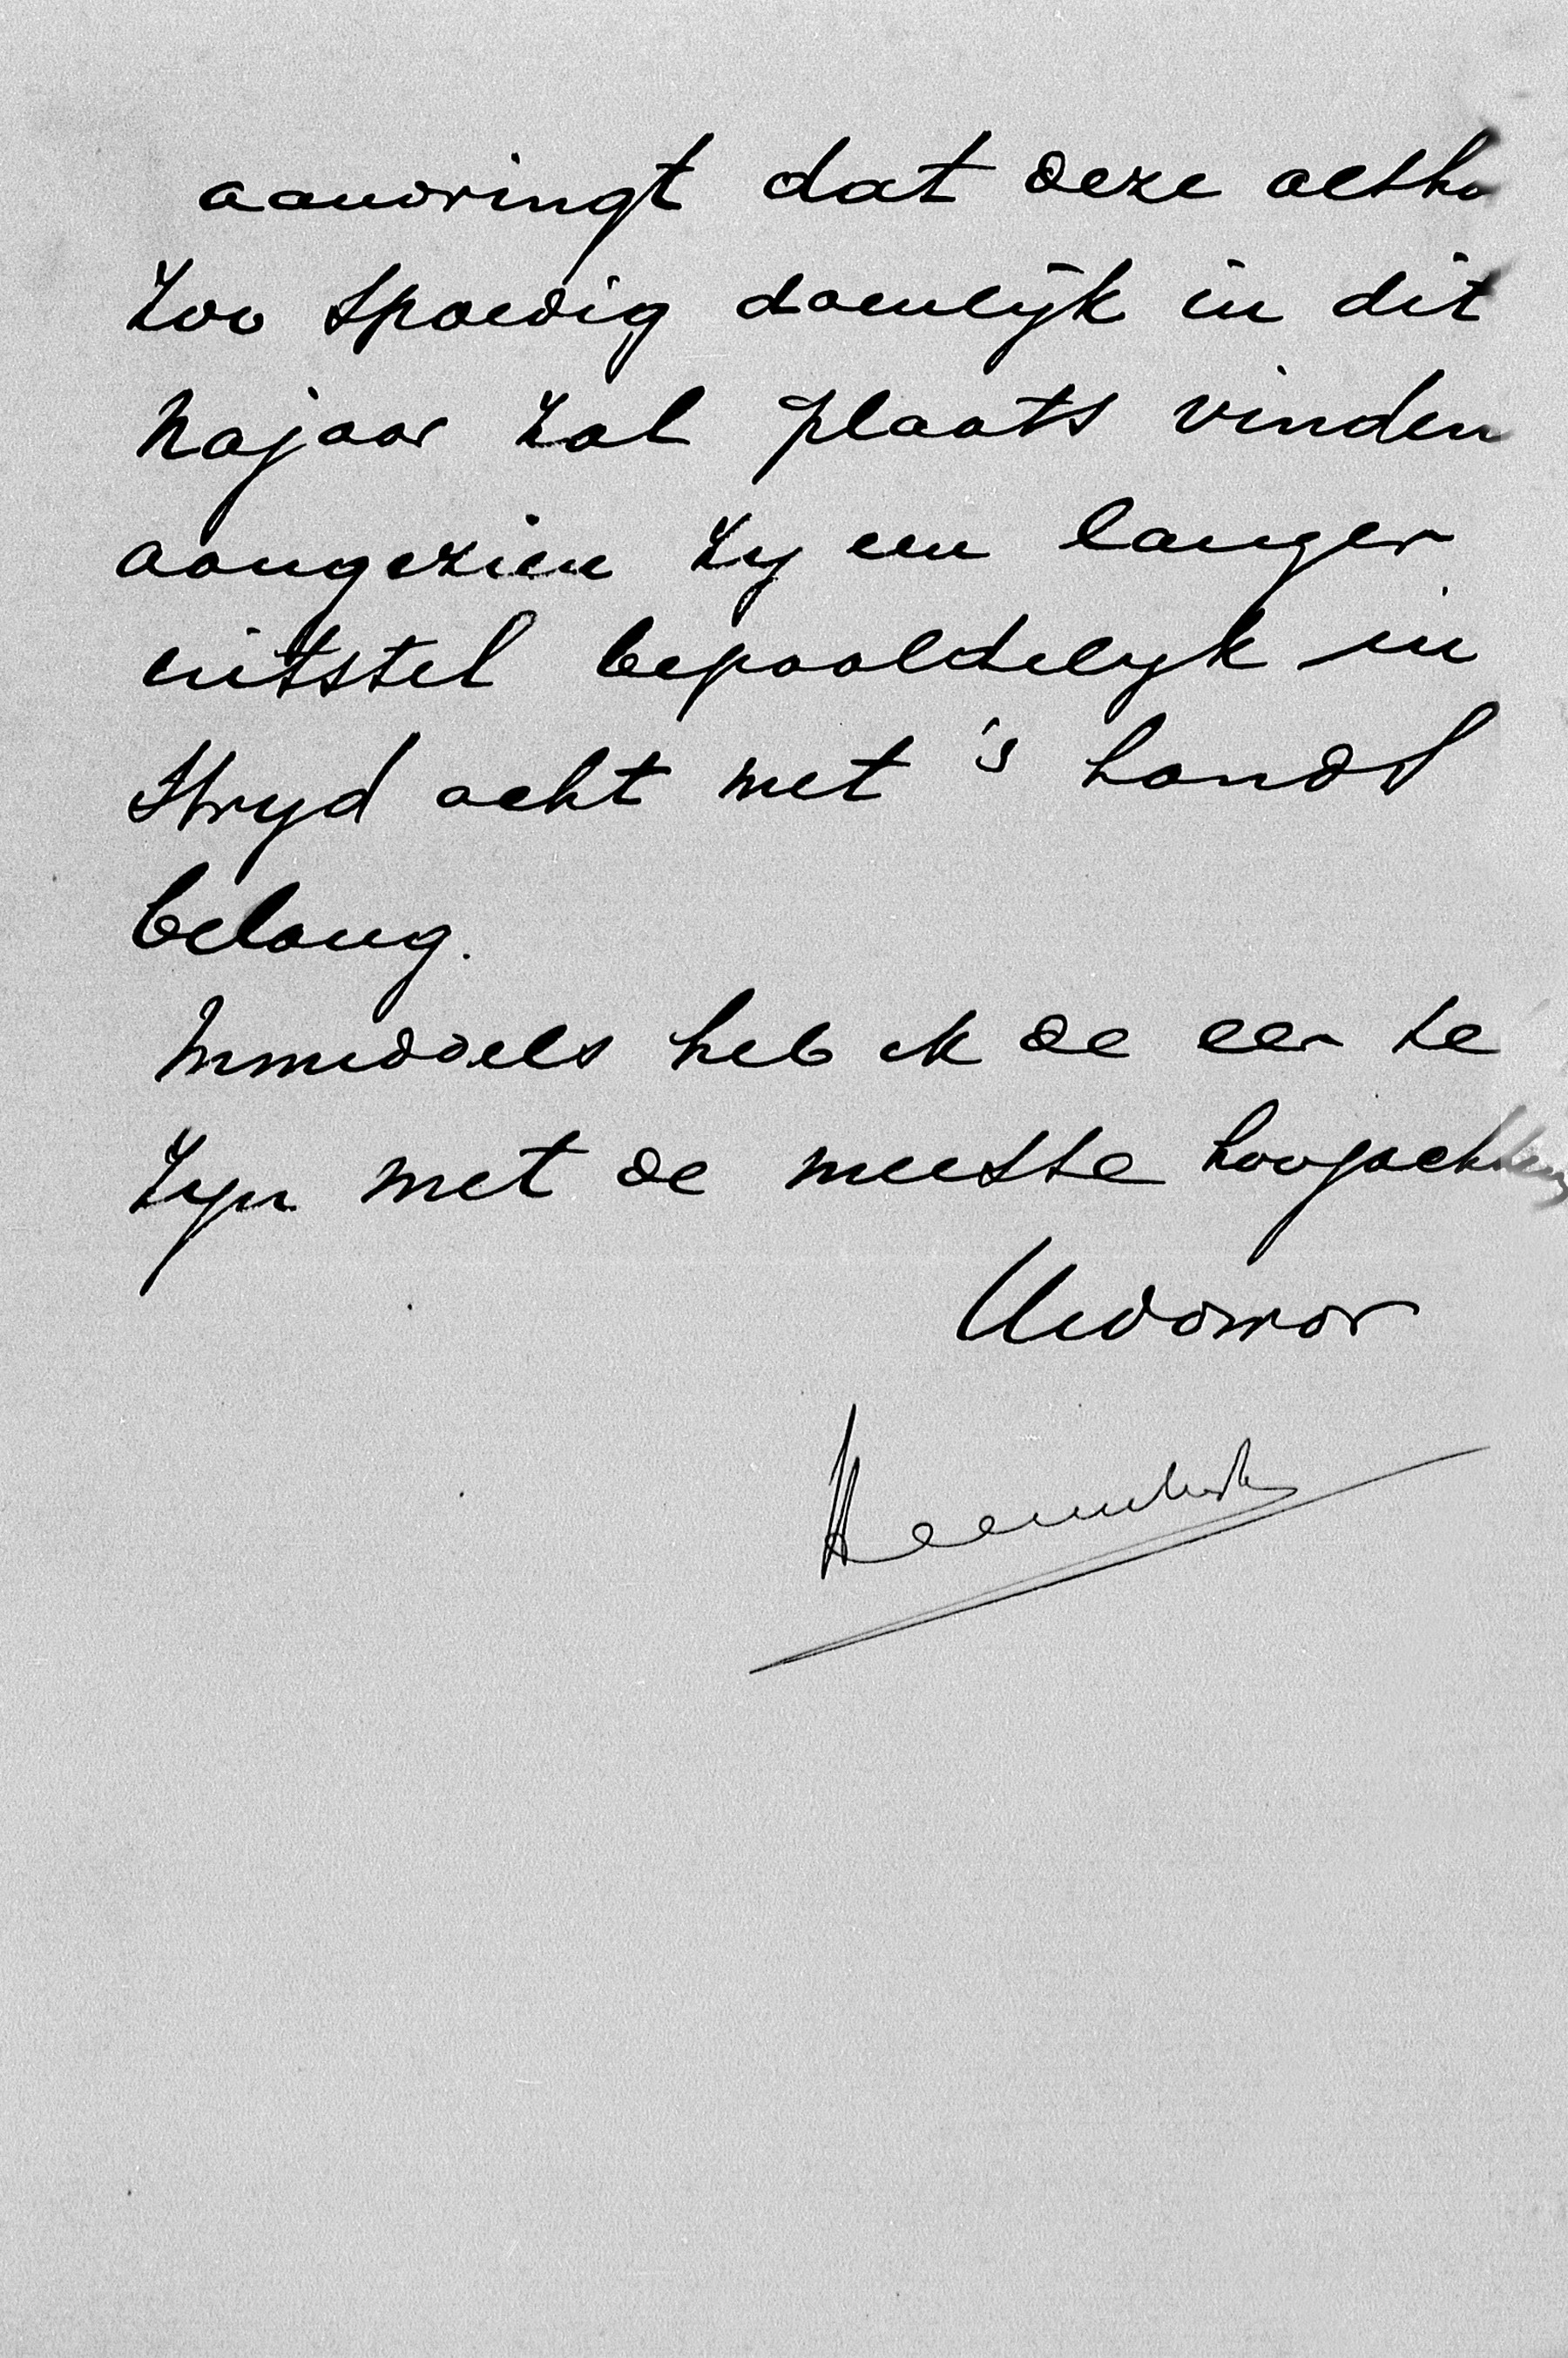 aandringt dat deze
zoo spoedig doenlijk in dit
najaar zal plaats vinden
aangezien zy een langer
uitstel bepaaldelyk in
stryd acht met 's lands
belang.
Inmiddels heb ik de eer te
zyn met de meeste hoogachting
Uwdwnr
Heemskerk